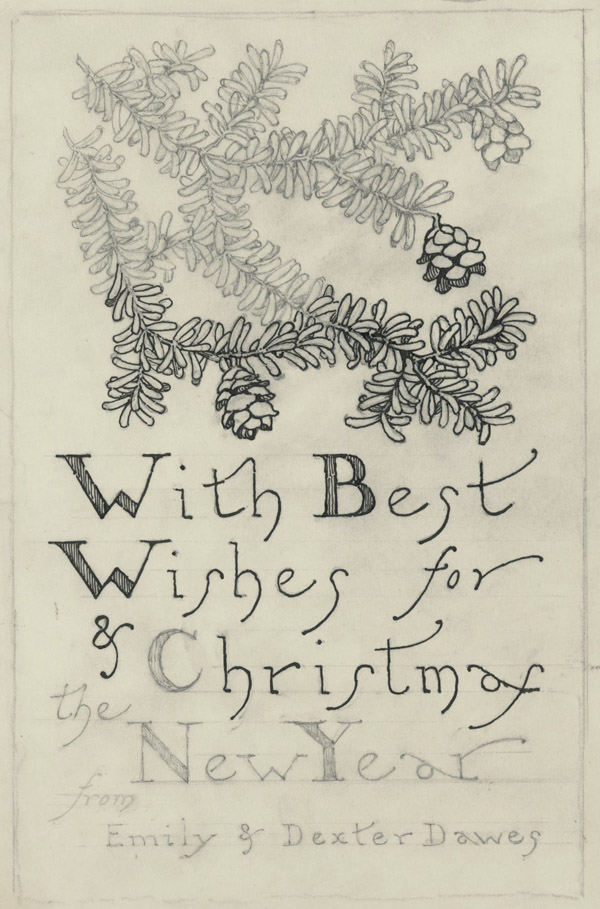 With Best
Wishes for
& Christmas
the
New Year
from
Emily & Dexter Dawes